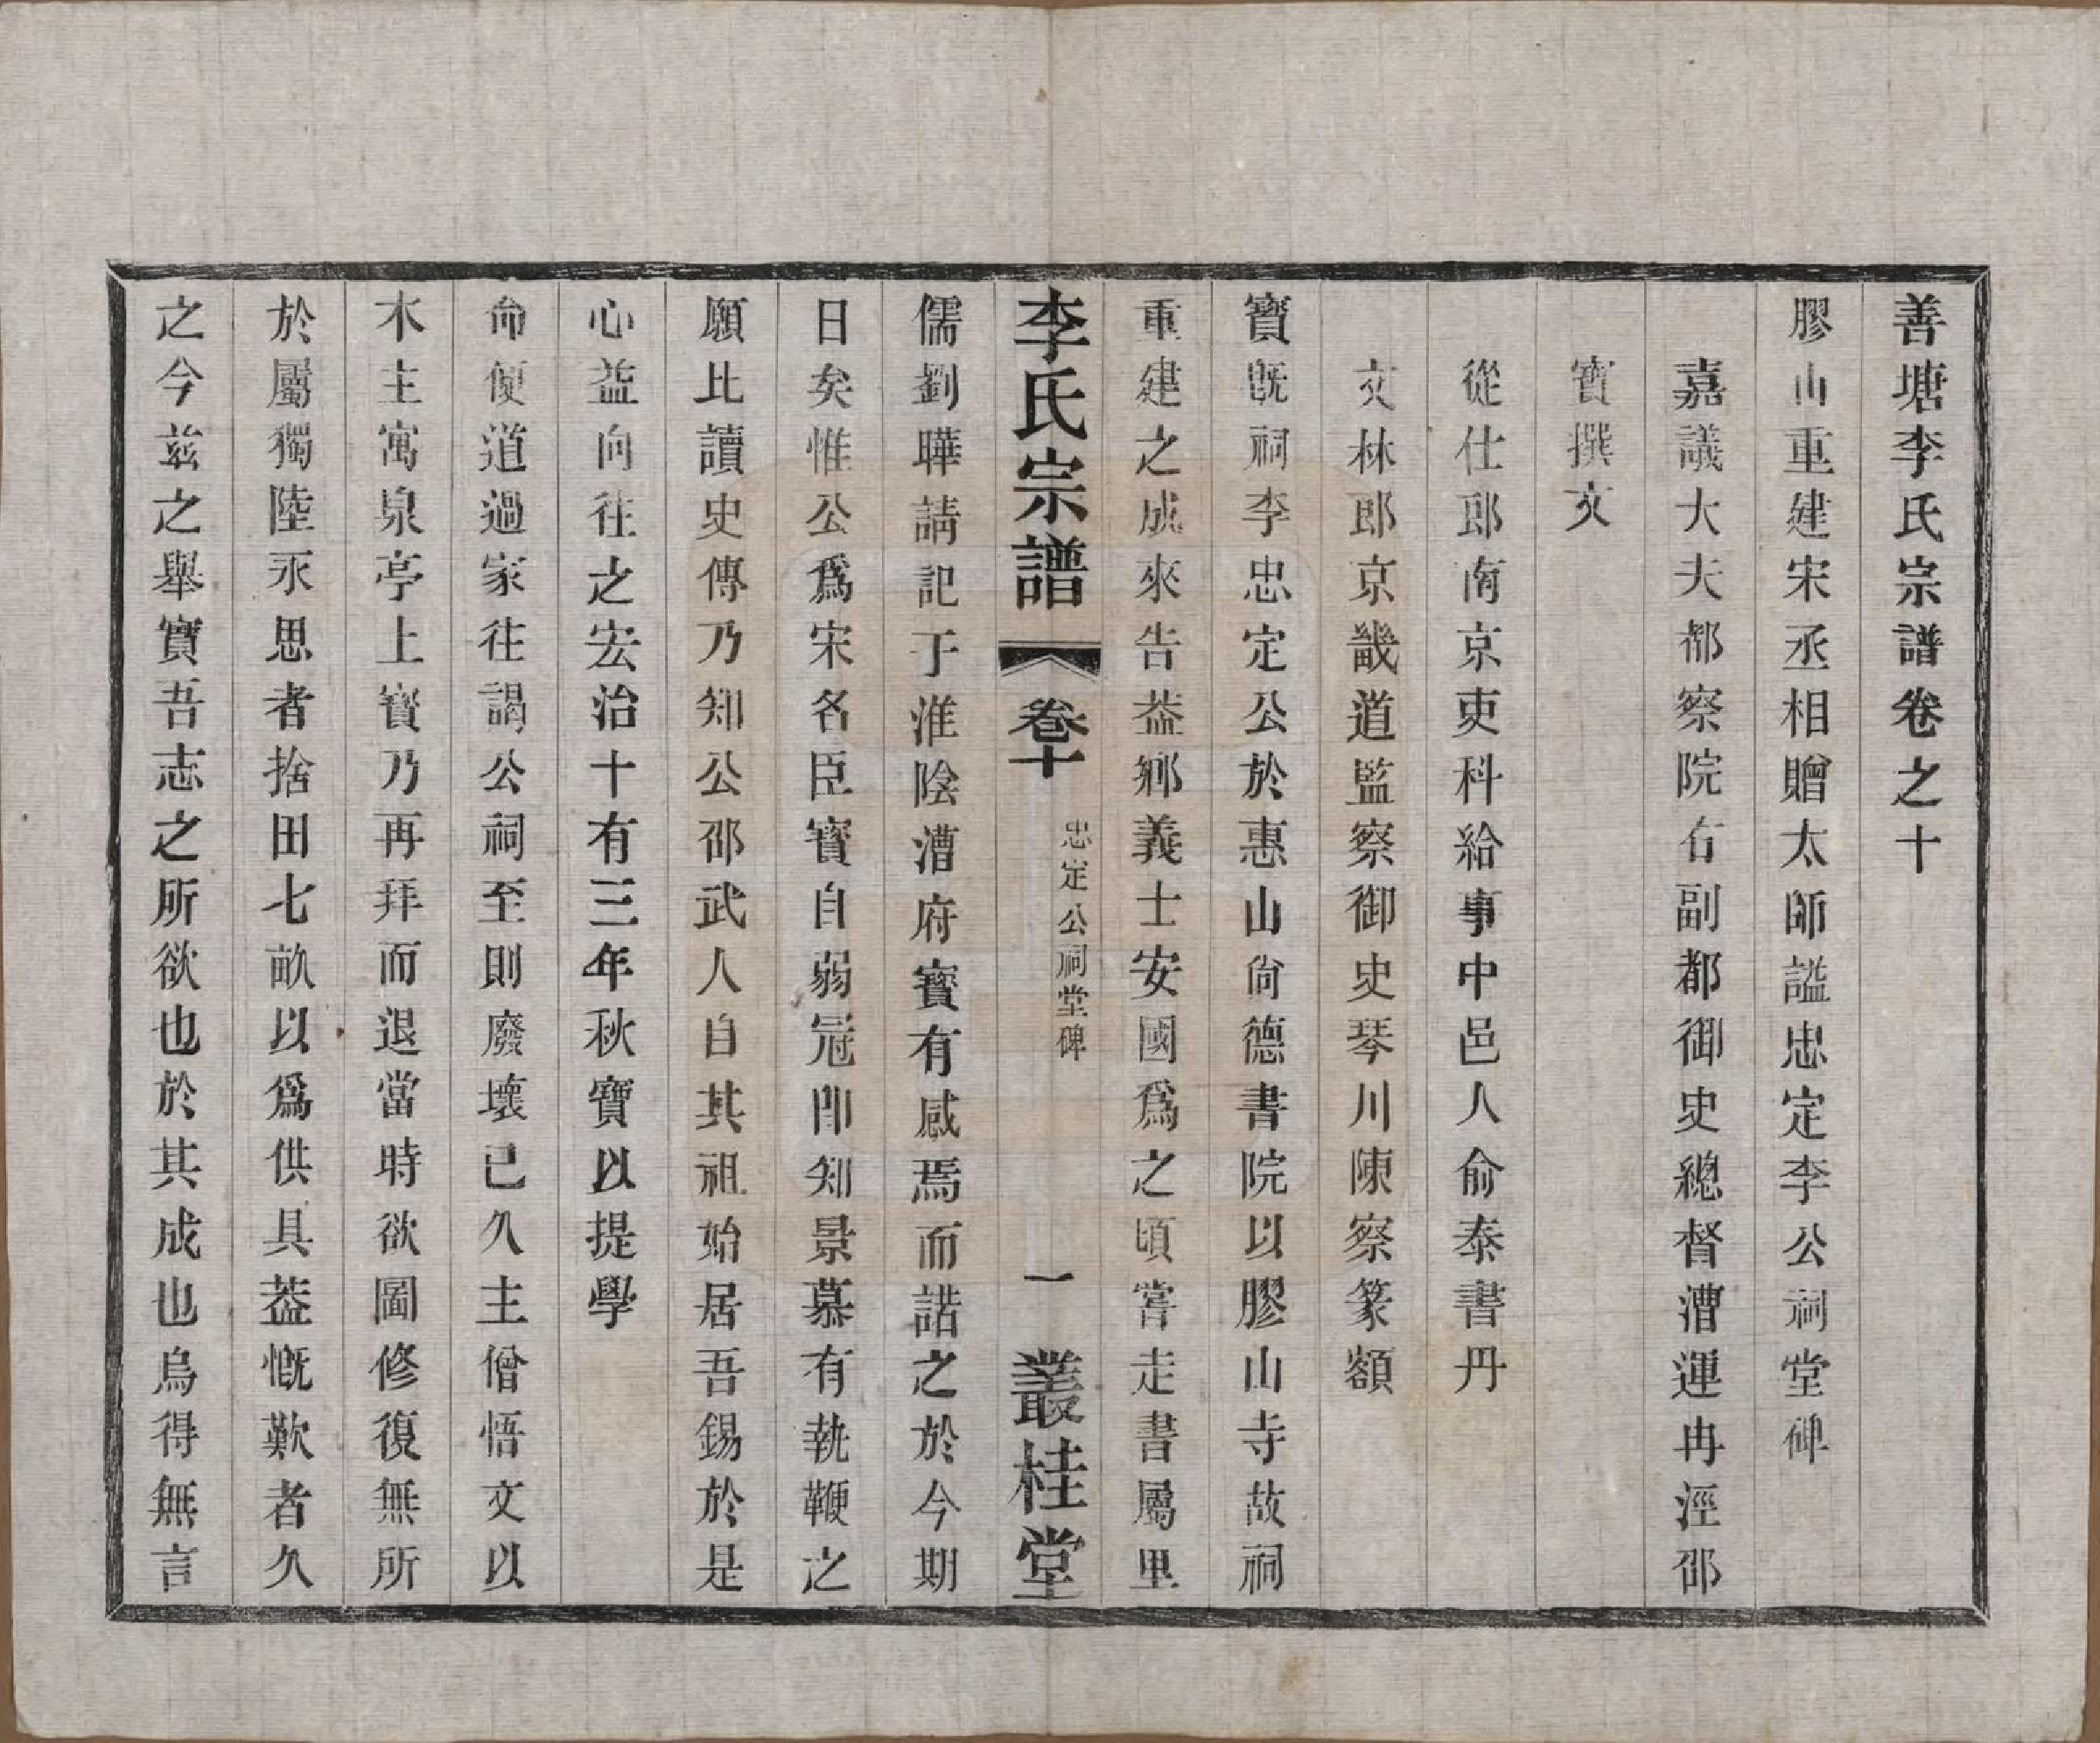 善塘李氏宗譜卷之十
膠山重建宋丞相贈太師謚忠定李公祠堂碑
嘉議大夫都察院右副都御史總督漕運冉涇邵
寶撰文
從仕郎南京吏科給事中邑人俞泰書丹
文林郎京畿道監察御史琴川陳察篆額
寶旣祠李忠定公於惠山尙德書院以膠山寺故祠
重建之成來告葢鄉義士安國爲之頃嘗走書屬里
李氏宗譜 卷十 忠定公祠堂碑 一 叢桂堂
儒劉曄請記于淮陰漕府寶有感焉而諾之於今期
日矣惟公爲宋名臣寶自弱冠卽知景慕有執鞭之
願比讀史傳乃知公邵武人自其祖始居吾錫於是
心益向往之宏治十有三年秋寶以提學
命便道過家往謁公祠至則廢壞已久主僧悟文以
木主寓泉亭上寶乃再拜而退當時欲圖修復無所
於屬獨陸永思者捨田七畝以爲供具葢慨歎者久
之今玆之舉寶吾志之所欲也於其成也烏得無言